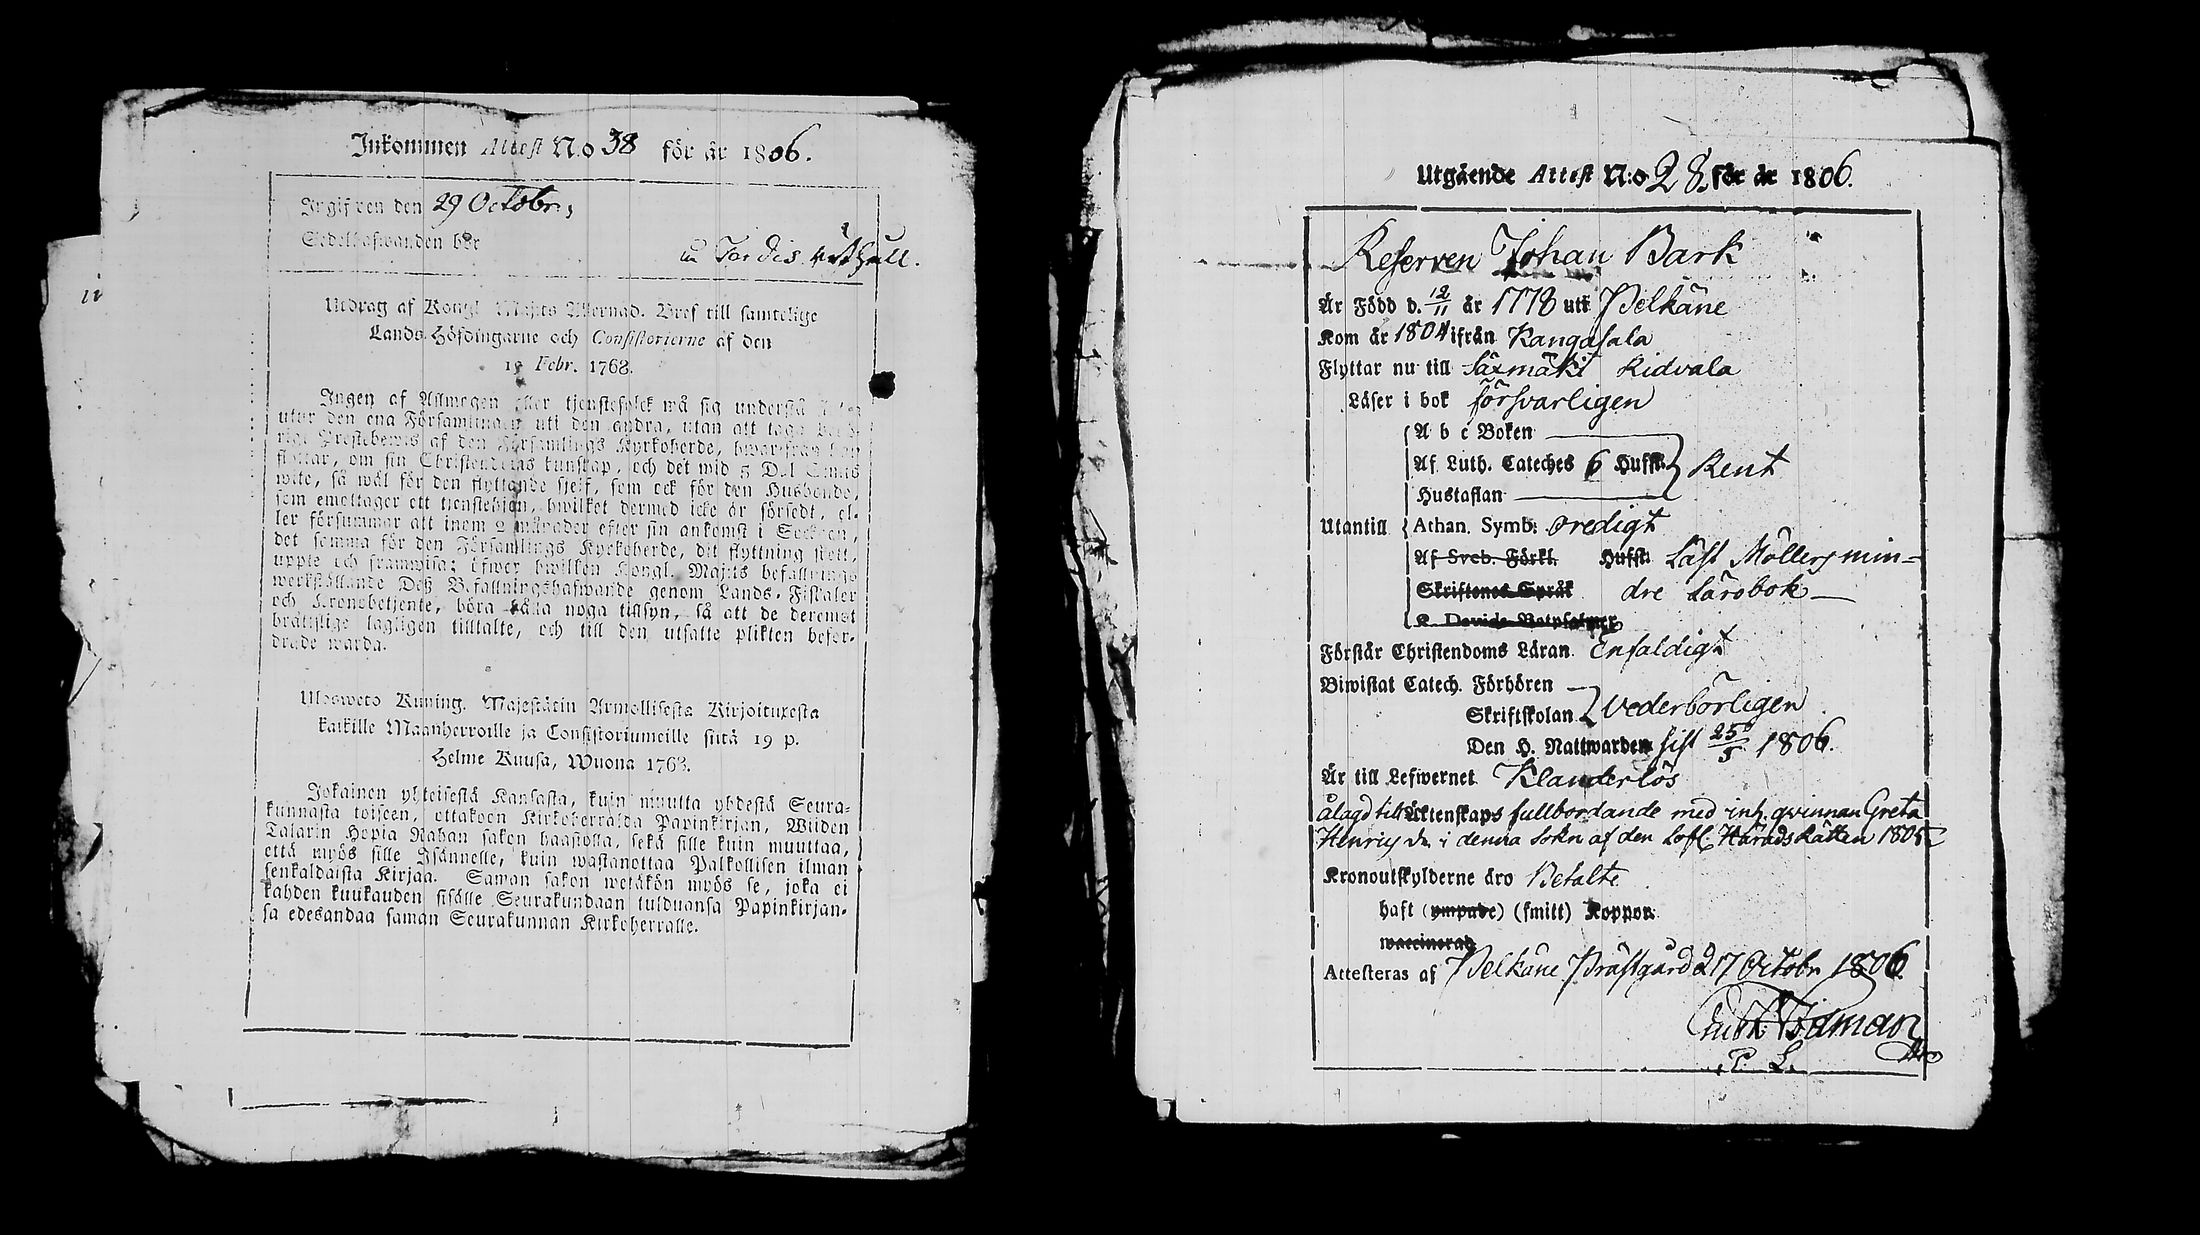 Inkommen Attest N:o 38 för år 1806.
Ingifven den 29 Octobr,
Sedelhafwanden bör
Utdrag af Kongl. Majits Allernåd. Bref till samtelige
Lands-Höfdingarne och Consistorierne af den
19 Febr. 1768.
Ingen af Allmogen eller tjenstefolck må sig understå
utur den ena Församlingen uti den andra, utan att taga
Prestebewis af den Församlings Kyrkoherde, hwarifrån han
flyttar, om sin Christendoms kunskap, och det wid 5 Dal. S:mts
wite, så wäl för den flyttande sjelf, som ock för den Husbonde,
som emottager ett tjenstehjon, hwilket dermed icke är försedt, el-
ler försummar att inom 2 månader efter sin ankomst i Socknen,
det samma för den Församlings Kyrkoherde, dit flyttning skett,
uppte och framwisa; öfwer hwilken Kongl. Majits befallnings
werkställande Deß Befallningshafwande genom Lands-Fiskaler
och Kronobetjente, böra hålla noga tillsyn, så att de deremot
brättslige lagligen tilltalte, och till den utsatte plikten befor-
drade warda.
Ulosweto Kuning. Majestätin Armollisesta Kirjoituxesta
kaikille Maanherroille ja Consistoriumeille siitä 19 p.
Helme Kuusa, Wuona 1763.
Jokainen yhteisestä Kansasta, kuin muutta yhdestä Seura-
kunnasta toiseen, ottakoon Kirkoherralda Papinkirjan, Wiiden
Talarin Hopia Rahan sakon haastolla, sekä sille kuin muuttaa,
että myös sille Isännelle, kuin wastanottaa Palkollisen ilman
senkaldaista Kirjaa. Saman sakon wetäkön myös se, joka ei
kahden kuukauden sisälle Seurakundaan tulduansa Papinkirjan-
sa edesandaa saman Seurakunnan Kirkoherralle.
Utgående Attest N:o 28. för år 1806.
Reserven Johan Bark
Är Född d. 12/11 år 1778 uti Pelkäne
Kom år 1804 ifrån Kangasala
Flyttar nu till Säxmäki Ridvala
Läser i bok försvarligen
A b c Boken
Af Luth. Cateches 6 Hufst. Rent
Hustaflan
Utantill Athan. Symb: oredigt
Af Sveb. Förkl. Hufst. Läst Möllers min-
Skriftenes Språk dre Lärobok
K. Davids Botpsalmer
Förstår Christendoms Läran Enfaldigt
Biwistat Catech. Förhören
Skriftskolan Vederbörligen
Den H. Nattwarden sist 25/5 1806.
Är till Lefwernet Klanderlös
ålagd till Äktenskaps fullbordande med inh. qvinnan Greta
Henrics dr. i denna Sokn af den Lofl. Härads Rätten 1805
Kronoutskylderne äro Betalte
haft (ympade) (smitt) Koppor.
waccinerad
Attesteras af Pelkäne Prästgård d 17 Octobr 1806
P. L.